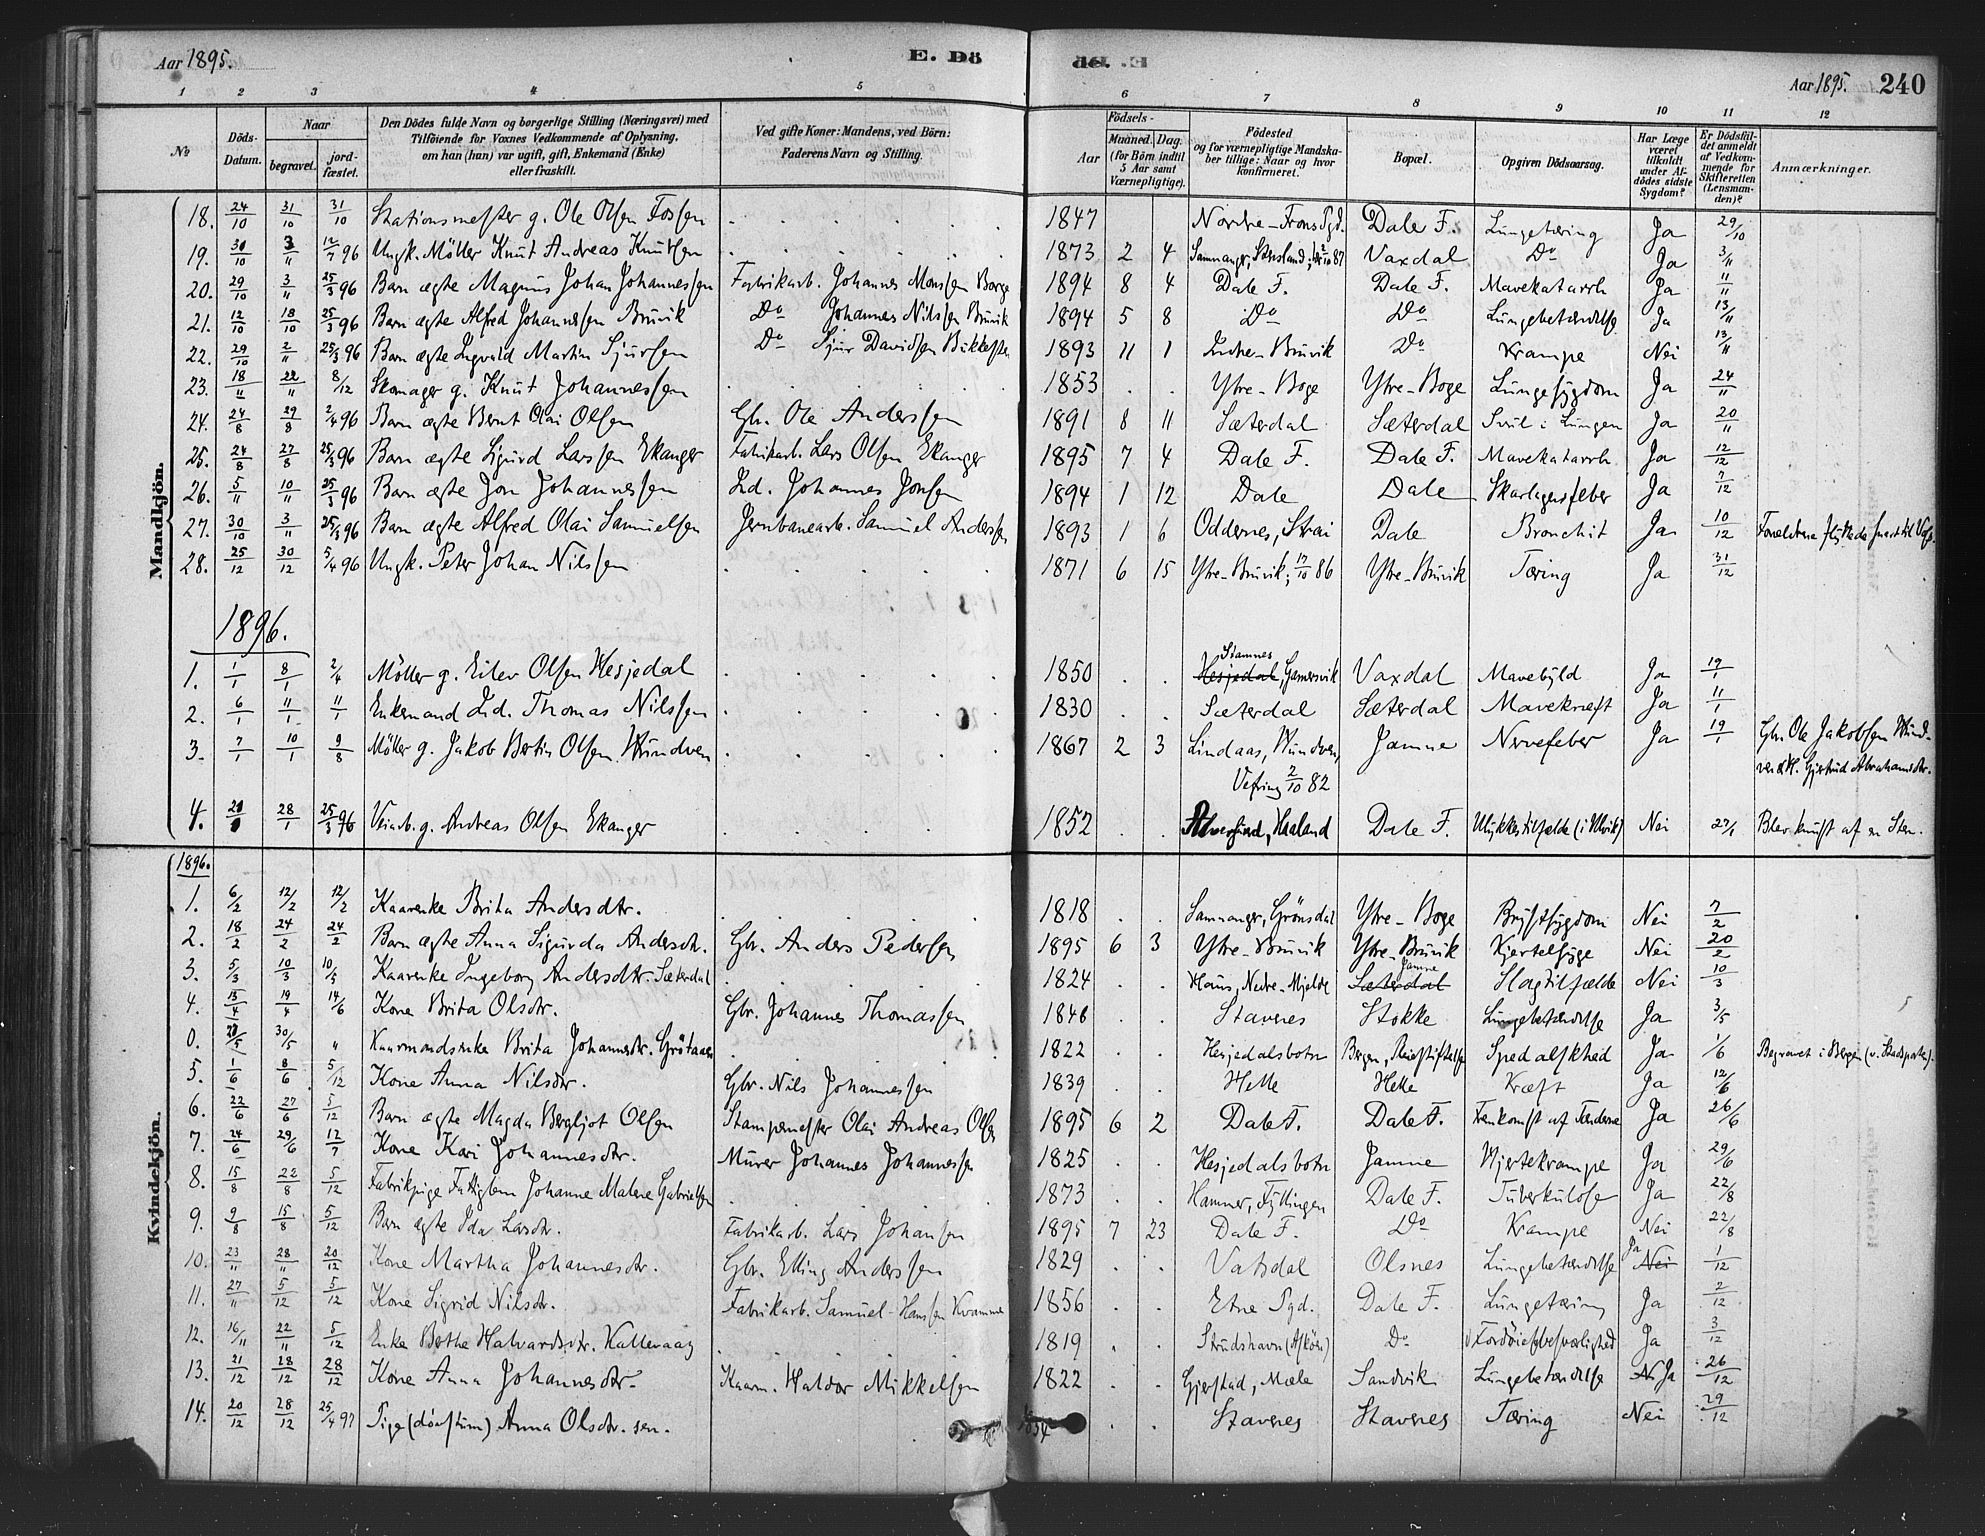 Aar 1895. E. Dö
Aar 1895. 240
1 2 3 4 5 6 7 8 9 10 11 12
No
Döds-Datum.
Naar
begravet.
jord-fæstet.
Den Dödes fulde Navn og borgerlige Stilling (Næringsvei) med
Tilföiende for Voxnes Vedkommende af Oplysning,
om han (hun) var ugift, gift, Enkemand (Enke)
eller fraskilt.
Ved gifte Koner: Mandens, ved Börn:
Faderens Navn og Stilling.
Födsels-
Aar
Maaned. Dag.
(for Börn indtil
5 Aar samt
Værnepligtige).
Födested
og for værnepligtige Mandska-
ber tillige: Naar og hvor
konfirmeret.
Bopæl.
Opgiven Dödsaarsag.
Har Læge
været
tilkaldt
under Af-
dödes sidste
Sygdom?
Er Dödsfal-
det anmeldt
af Vedkom-
mende for
Skifteretten
(Lensman-
den)?
Anmærkninger.
Mandkjön.
18. 24/10 31/10 31/10 Stationsmester g. Ole Olsen Fossen 1847 Nordre-Frons Pgd. Dale F. Lungetæring Ja 29/10
19. 30/10 3/11 12/7 96 Ungk. Möller Knut Andreas Knutsen 1873 2 4 Samnanger, 87 Vaxdal Do Ja 3/11
20. 29/10 3/11 25/3 96 Barn ægte Magnus Johan Johannessen Fabrikarb. Johannes Monsen Borge 1894 8 4 Dale F. Dale F. Mavekatarrh Ja
21. 12/10 18/10 25/3 96 Barn ægte Alfred Johannessen Bruvik Do Johannes Nilsen Bruvik 1894 5 8 Do Do Lungebetændelse Ja 13/11
22. 29/10 2/11 25/3 96 Barn ægte Ingvald Martin Sjursen Do Sjur Davidsen 1893 11 1 Indre-Bruvik Do Krampe Nei 13/11
23. 18/11 22/11 8/12 Skomager g. Knut Johannessen 1853 . . Ytre-Boge Ytre-Boge Lungesygdom Ja 24/11
24. 24/8 29/8 2/4 96 Barn ægte Bernt Olai Olsen Gbr. Ole Andersen 1891 8 11 Sæterdal Sæterdal Svul i Lungen Ja 20/11
25. 24/8 27/8 25/3 96 Barn ægte Sigurd Larssen Ekanger Fabrikarb. Lars Olsen Ekanger 1895 7 4 Dale F. Dale F. Mavekatarrh Ja 12/12
26. 5/11 10/11 25/3 96 Barn ægte Jon Johannessen Ind. Johannes Jonsen 1894 1 12 Dale Dale Skarlagensfeber Ja 7/12
27. 30/10 3/11 25/3 96 Barn ægte Alfred Olai Samuelsen Jernbanearb. Samuel Anderssen 1893 1 6 Oddernes, Strai Dale Bronchit Ja 10/12 Forældrene flyttede snart til
28. 25/12 30/12 5/4 96 Ungk. Peter Johan Nilsen 1871 6 15 Ytre-Bruvik; 86 Ytre-Bruvik Tæring Ja 31/12
1896.
1. 1/1 8/1 2/4 Möller g. Eilev Olsen Hesjedal 1850 . . Stamnes Hesjedal, Gamersvik Vaxdal Mavebyld Ja 19/1
2. 6/1 11/1 11/1 Enkemand Ind. Thomas Nilssen 1830 . . Sæterdal Sæterdal Mavekræft Ja 11/1
3. 7/1 10/1 9/8 Möller g. Jakob Bertin Olsen Hundven 1867 2 3 Lindaas, Hundven, Jamne Nervefeber Ja 19/1 Gbr. Ole Jakobsen Hund-
2/10 82 ven & H. Gjertrud Abrahamsdtr.
4. 28/1 25/3 96 Veiarb. g. Andreas Olsen Ekanger 1852 . . Haaland Dale F. Ulykkestilfælde (i Ulvik) Nei 27/1 Blev knust af en Sten.
Kvindekjön.
1896.
1. 6/2 12/2 12/2 Kaarenke Brita Andersdtr. 1818 . . Samnanger, Grönsdal Ytre-Boge Brystsygdom Nei 7/2
2. 18/2 24/2 24/2 Barn ægte Anna Sigurda Andersdtr. Gbr. Anders Pedersen 1895 6 3 Ytre-Bruvik Ytre-Bruvik Kjertelsyge Nei 20/2
3. 5/3 10/3 10/5 Kaarenke Ingeborg Andersdtr. Sæterdal 1824 . . Haus, Nedre-Mjelde Sæterdal Jamne Slagtilfælde Nei 10/3
4. 13/4 19/4 14/6 Kone Brita Olsdtr. Gbr. Johannes Thomassen 1846 . . Stavenes Stokke Lungebetændelse Ja 3/5
0. 30/5 " Kaarmandsenke Brita Johannesdtr. Grötaaen 1822 . . Hesjedalsbotn Bergen, Spedalskhed Ja 1/6 Begravet i Bergen
5. 1/6 8/6 5/12 Kone Anna Nilsdtr. Gbr. Nils Johannessen 1839 . . Helle Helle Kræft Ja 12/6
6. 22/6 27/6 5/12 Barn ægte Magda Bergljot Olsen Stampemester Olai Andreas Olsen 1895 6 2 Dale F. Dale F. Fremkomst af Tænderne Ja 26/6
7. 24/6 29/6 12/7 Kone Kari Johannesdtr. Murer Johannes Johannessen 1825 . . Hesjedalsbotn Jamne Hjertekrampe Ja 29/6
8. 15/8 22/8 5/12 Fabrikpige Fattiglem Johanne Malene Gabrielsen 1873 . . Hammer, Fyllingen Dale F. Tuberkulose Ja 22/8
9. 9/8 15/8 5/12 Barn ægte Ida Larsdtr. Fabrikarb. Lars Johansen 1895 7 23 Dale F. Do Krampe Nei 22/8
10. 23/11 28/11 20/12 Kone Martha Johannesdtr. Gbr. Elling Anderssen 1829 . . Vatsdal Olsnes Lungebetændelse Ja Nei 1/12
11. 27/11 5/12 5/12 Kone Sigrid Nilsdtr. Fabrikarb. Samuel Hanssen Kvamme 1856 . . Etne Pgd. Dale F. Lungetæring Ja 2/12
12. 16/11 22/11 5/12 Enke Berthe Halvardsdtr. Kallevaag 1819 . . Strudshavn (Asköen) Do Fordöielsesbesværlighed Ja 3/12
13. 21/12 28/12 28/12 Kone Anna Johannesdtr. Kaarm. Haldor Mikkelsen 1822 . . Gjerstad, Mæle Sandvik Lungebetændelse Ja 26/12
14. 20/12 28/12 25/4 97 Pige (döfstum) Anna Olsdtr. sen. 1854 . . Stavenes Stavenes Tæring Nei 29/12